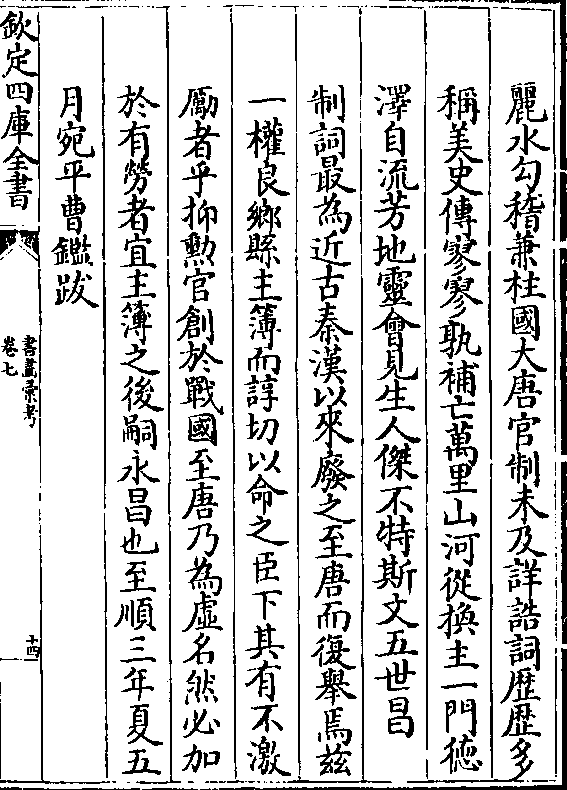 麗水勾稽兼柱國大唐官制未及詳誥詞歴歴多
稱美史傳寥寥孰補亡萬里山河從換主一門徳
澤自流芳地靈會見生人傑不特斯文五世昌
制詞最為近古秦漢以來廢之至唐而復舉焉兹
一權良鄉縣主簿而諄切以命之臣下其有不激
勵者乎抑勲官創於戰國至唐乃為虛名然必加
於有勞者宜主簿之後嗣永昌也至順三年夏五
月宛平曹鑑跋
欽定四庫全書
書畫彚考
卷七
十四